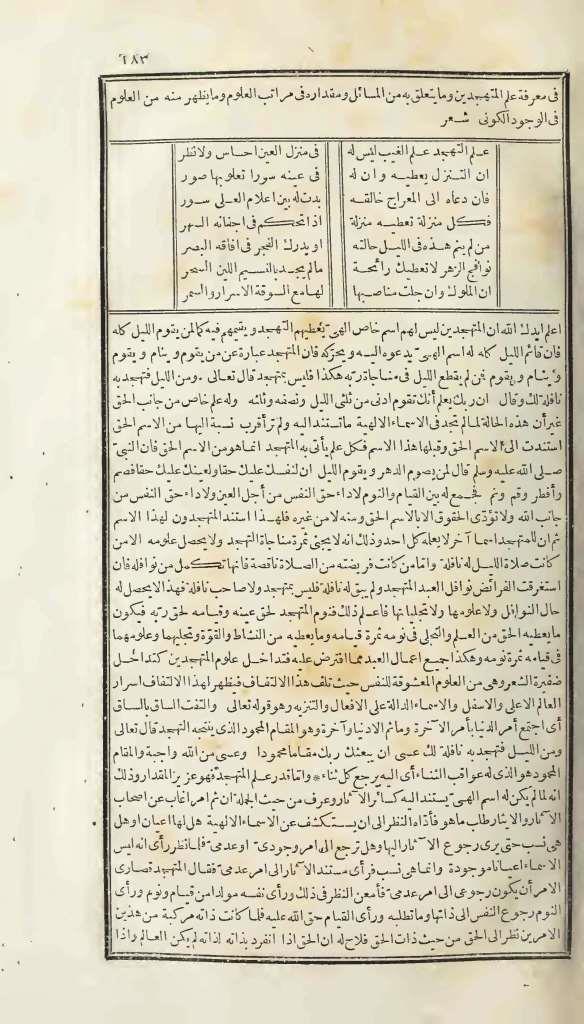 ١٨٣
فى معرفة علم المتهجدين وما يتعلق به من المسائل ومقداره فى مراتب العلوم وما يظهر منه من العلوم
فى الوجود الكونى شعر
علم التهجد علم الغيب ليس له فى منزل العين احساس ولا نظر
ان التنزل يعطيه وان له فى عينه سورا تعلو بها صور
فان دعاه الى المعراج خالقه بدت له بين اعلام العلى سور
فكل منزلة تعطيه منزلة اذا تحكم فى اجفانه السهر
من لم ينم هذه فى الليل حالته او يدرك الفجر فى افاقه البصر
نوافج الزهر لا تعطيك رائحة مالم يجد بالنسيم اللين السحر
ان الملوك وان جلت مناصبها لها مع السوقة الاسرار والسمر
اعلم ايدك الله ان المتهجدين ليس لهم اسم خاص الهى يعطيهم التهجد ويقيمهم فيه كما لمن يقوم الليل كله
فان قائم الليل كله له اسم الهى يدعوه اليه ويحركه فان المتهجد عبارة عن من يقوم وينام ويقوم
وينام ويقوم فمن لم يقطع الليل فى مناجاة ربه هكذا فليس بمتهجد قال تعالى ومن الليل فتهجد به
نافلة لك وقال ان ربك يعلم أنك تقوم ادنى من ثلثى الليل ونصفه وثلثه وله علم خاص من جانب الحق
غير أن هذه الحالة لما لم تجد فى الاسماء الالهية ما تستند اليه ولم تر أقرب نسبة اليها من الاسم الحق
استندت الى الاسم الحق وقبلها هذا الاسم فكل علم يأتى به المتهجد انما هو من الاسم الحق فان النبى
صلى الله عليه وسلم قال لمن يصوم الدهر ويقوم الليل ان لنفسك عليك حقا ولعينك عليك حقا فصم
وأفطر وقم ونم فجمع له بين القيام والنوم لاداء حق النفس من أجل العين ولاداء حق النفس من
جانب الله ولا تؤدى الحقوق الا بالاسم الحق ومنه لا من غيره فلهذا استند المتهجدون لهذا الاسم
ثم ان للمتهجد امرا آخر لا يعلمه كل احد وذلك انه لا يجنى ثمرة مناجاة التهجد ولا يحصل علومه الا من
كانت صلاة الليل له نافلة وامّا من كانت فريضته من الصلاة ناقصة فانها تكمل من نوافله فان
استغرقت الفرائض نوافل العبد المتهجد ولم يبق له نافلة فليس بمتهجد ولا صاحب نافلة فهذا لا يحصل له
حال النوافل ولا علومها ولا تجلياتها فاعلم ذلك فنوم المتهجد لحق عينه وقيامه لحق ربه فيكون
ما يعطيه الحق من العلم والتجلى فى نومه ثمرة قيامه وما يعطيه من النشاط والقوة وتجليهما وعلومهما
فى قيامه ثمرة نومه وهكذا جميع اعمال العبد مما افترض عليه فتداخل علوم المتهجدين كتداخل
ضفيرة الشعر وهى من العلوم المعشوقة للنفس حيث تلتف هذا الالتفاف فيظهر لهذا الالتفاف اسرار
العالم الاعلى والاسفل والاسماء الدالة على الافعال والتنزيه وهو قوله تعالى والتفت الساق بالساق
أى اجتمع أمر الدنيا بأمر الآخرة وما ثم الا دنيا وآخرة وهو المقام المحمود الذى ينتجه التهجد قال تعالى
ومن الليل فتهجد به نافلة لك عسى ان يبعثك ربك مقاما محمودا وعسى من الله واجبة والمقام
المحمود هو الذى له عواقب الثناء أى اليه يرجع كل ثناء * وامّا قدر علم المتهجد فهو عزيز المقدار وذلك
انه لما لم يكن له اسم الهى يستند اليه كسائر الآثار وعرف من حيث الجملة ان ثم امرا غاب عن اصحاب
الآثار والآثار طلب ما هو فأدّاه النظر الى ان يستكشف عن الاسماء الالهية هل لها اعيان او هل
هى نسب حتى يرى رجوع الآثار اليها وهل ترجع الى امر وجودى او عدمى فلما نظر رأى انه ليس
الاسماء اعيانا موجودة وانما هى نسب فرأى مستند الآثار الى امر عدمى فقال المتهجد قصارى
الامر أن يكون رجوعى الى امر عدمى فأمعن النظر فى ذلك ورأى نفسه مولدا من قيام ونوم ورأى
النوم رجوع النفس الى ذاتها وما تطلبه ورأى القيام حق الله عليه فلما كانت ذاته مركبة من هذين
الامرين نظر الى الحق من حيث ذات الحق فلاح له ان الحق اذا انفرد بذاته لذاته لم يكن العالم واذا